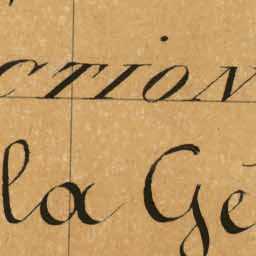 CTION
la Gé